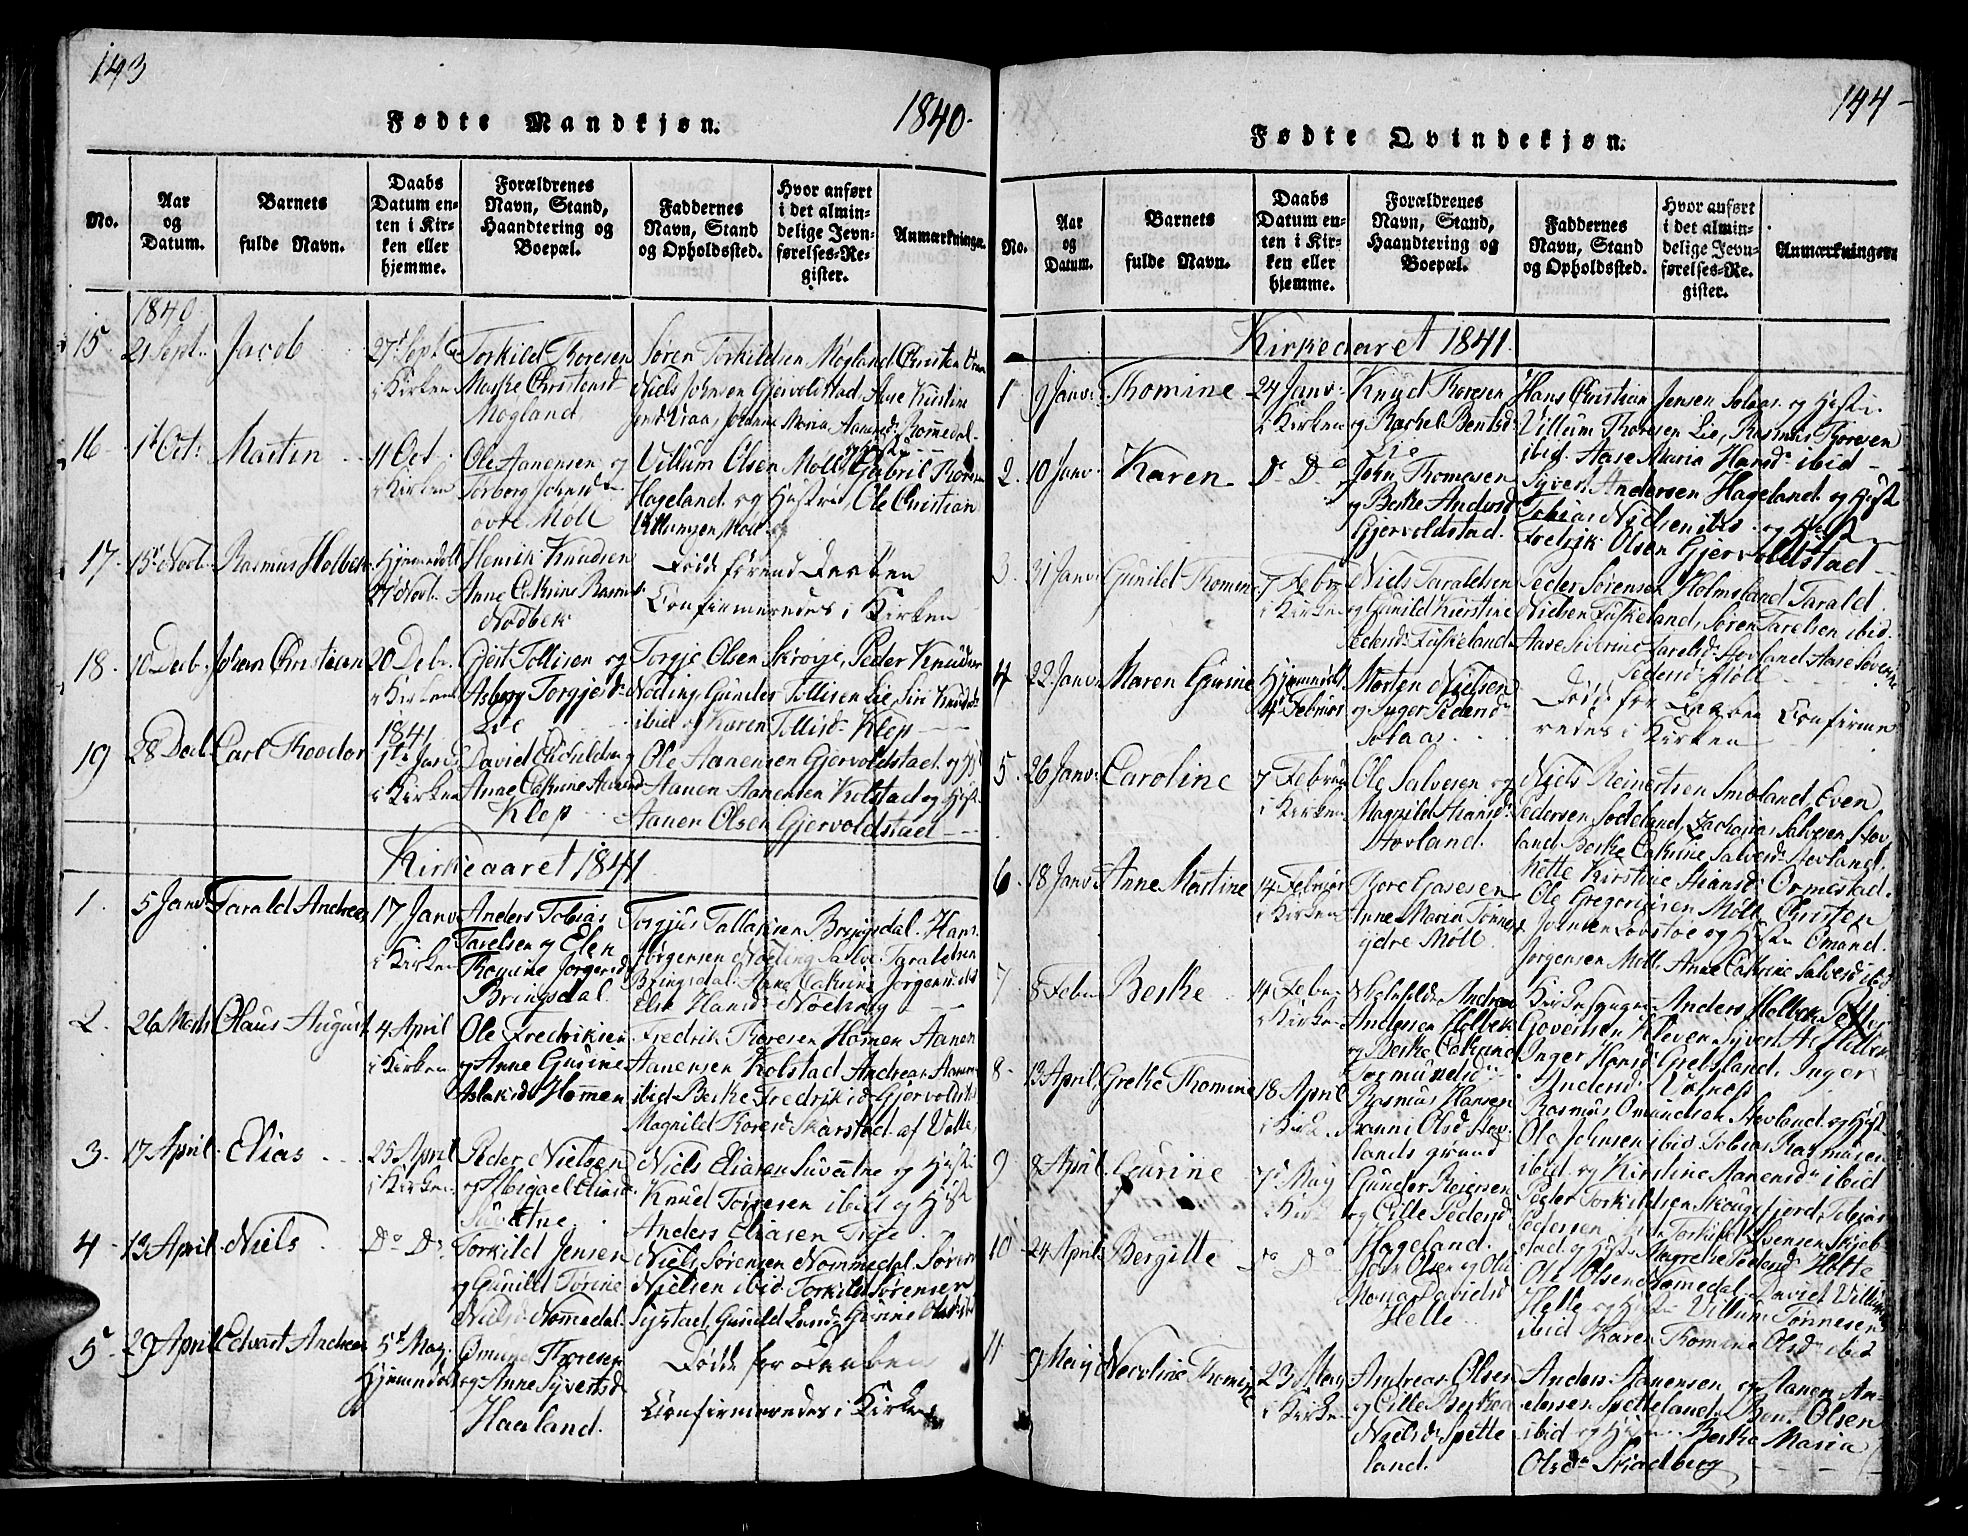 143
Fødte Mandkjøn.
1840.
No.
Aar og Datum.
Barnets fulde Navn.
Daabs Datum enten i Kirken eller hjemme.
Forældrenes Navn, Stand, Haandtering og Boepæl.
Faddernes Navn, Stand og Opholdssted.
Hvor anført i det almindelige Jevnførelses-Register.
Anmærkninger.
1840
15 21 Sept. Jacob 27 Sept. i Kirken
Torkild Thoresen
Marthe Christensd
Mogland
Søren Torkildsen Mogland Christen
Niels Johnsen Gjervoldstad, Aase Kirstine
16 1st Oct: Martin 11 Oct. i Kirken
Ole Aanensen og
Torborg Johnsd
øvre Moll
Villum Olsen Moll
Hageland og Hustrue, Ole Christian
Villumsen Moll
17. 15 Novb. Rasmus Holbek Hjemmedøbt
Henrik Knudsen
Anne Cathrine Rasmusd
Nodbek
Død førend Daaben
Confirmeredes i Kirken
18. 10 Decb. Johan Christian 20 Decb. i Kirken
Gjert Tollisen og
Asborg Torgjersd
Lie
Torgje Olsen Skroije, Peder Knudsen
Noding Gunder Tollisen Lie, Siri Knudsd
ibid og Karen Tollisd Klep
19 28 Decb. Carl Theodor 1841 1ste Janv i Kirken
David
Anne Cathrine Aanensd
Klep
Ole Aanensen Gjervoldstad og Hust
Aanen Aanensen Kolstad og Hust.
Aanen Olsen Gjervoldstad
Kirkeaaret 1841
1. 5 Janv Tarald Andreas 17 Janv i Kirken
Anders Tobias
Tarelsen og Elen
Thomine Jørgensd
Bringsdal
Torgjus Tallaksen Bringsdal. Hans
Jørgensen Noding Salve Taraldsen
Bringsdal. Anne Cathrine Jørgensd ibid
Else Hansd Nodning
2. 26 Marts Olaus August 4 April i Kirken
Ole Fredriksen
og Anne Gurine
Aslaksd Homen
Fredrik Thoresen Homen Aanen
Aanensen Kolstad Andreas Aanensen
ibid Berthe Fredriksd Gjervoldstad
Magnild Thoresd Skarstad af Valle
3. 17 April Elias 25 April i Kirken
Peder Nielsen
og Abigael Eliasd
Suvatne
Niels Eliasen Suvatne og Hust.
Knud Torjesen ibid og Hust
Anders Eliasen Trje
4 13 April Niels Do Do
Torkild Jensen
og Gunild Torine
Nielsd Nommedal
Niels Sørensen Nommedal Søren
Nielsen ibid Torkild Sørensen
5 29 April Edvart Andreas 5t May. Hjemmedøbt
Omund Thoresen
og Anne Syvertsd
Haaland.
Født før Daaben
Confirmeredes i Kirken
144
Fødte Qvindekjøn.
No.
Aar og Datum.
Barnets fulde Navn.
Daabs Datum enten i Kirken eller hjemme.
Forældrenes Navn, Stand, Haandtering og Boepæl.
Faddernes Navn, Stand og Opholdssted.
Hvor anført i det almindelige Jevnførelses-Register.
Anmærkninger.
Kirkeaaret 1841.
1 9 Janv. Thomine 24 Janv. i Kirken
Knud Thoresen
og Rachel Bentsd
Lie
Hans Christian Jensen Solaas og Hust.
Villum Thoresen Lie, Rasmus Thoresen
ibid. Aase Maria Hansd ibid
2. 10 Janv Karen Do Do
John Thomesen
og Berthe Andersd
Gjervoldstad.
Syvert Andersen Hageland og Hust
Tobias Nielsen ibid og Hust
Fredrik Olsen Gjervoldstad
3. 31 Janv. Gunild Thomine 7 Febr i Kirken
Niels Taraldsen
og Gunild Kirstine
Pedersd Fuskeland
Peder Sørensen Holmsland Tarald
Nielsen Fuskeland, Søren Tarelsen ibid.
Aase Siverine Tarelsd Hovland Aase Severine
Pedersd Moll
4 22 Janv. Maren Gurine Hjemmedøbt 4 Februar
Morten Nielsen
og Inger Pedersd
Solaas.
Død før Daaben Confirme
redes i Kirken
5. 26 Janv. Caroline 7 Februar i Kirken
Ole Salvesen og
Magnild Hansd
Hovland.
Niels Reinertsen Smoland, Even
Pedersen Sodeland, Zacharias Salvesen Hov
land Berthe Cathrine Salvesd Hovland,
Mette Kirstine Hansd Ormestad.
6. 18 Janv. Anne Martine 14 Februar i Kirken
Tore Gasesen
Anne Maria Tønnesd
ydre Moll.
Ole Gregoriusen Moll Christen
Johnsen Lovstoe og Hust Omund
Jørgensen Moll. Anne Cathrine Salvesd ibid
7 8 Febr Berthe 14 Febr. i Kirken
Andersen Holbek
og Berthe Cathrine
Tormundsd
Kirkesanger Anders Holbek Peder
Govertsen Kleven Syvert
Inger Hansd Gjelsland. Inger
8. 13 April Grethe Thomine 18 April i Kirk.
Rasmus Hansen
Olsd Hov
lands grund
Rasmus Omundsen Hovland og Hust
Ole Johnsen ibid Tobias Rasmusen
ibid og Kirstine Aanensd ibid
9 8 April Gurine 7 May i Kirk
Gunder Reiersen
og Cille Pedersd
Hageland.
Peder Torkildsen Skougsfjord, Tobias
Pedersen
10 24 April Bergitte Do Do
Jon Olsen og Oli
Maria Davidsd
Helle
Ole Olsen Homedal. David Villumsen
Helle og Hust Villum Tønnesen
ibid Karen Thomine Olsd ibid
11 9 May Necoline Thomine 23 May i Kirken
Andreas Olsen
og Cille Berthea
Nielsd Spette
land.
Anders Aanensen og Aanen An
dersen Spetteland, Bent Olsen
ibid og Hust. Berthe Maria
Olsd Skjadberg